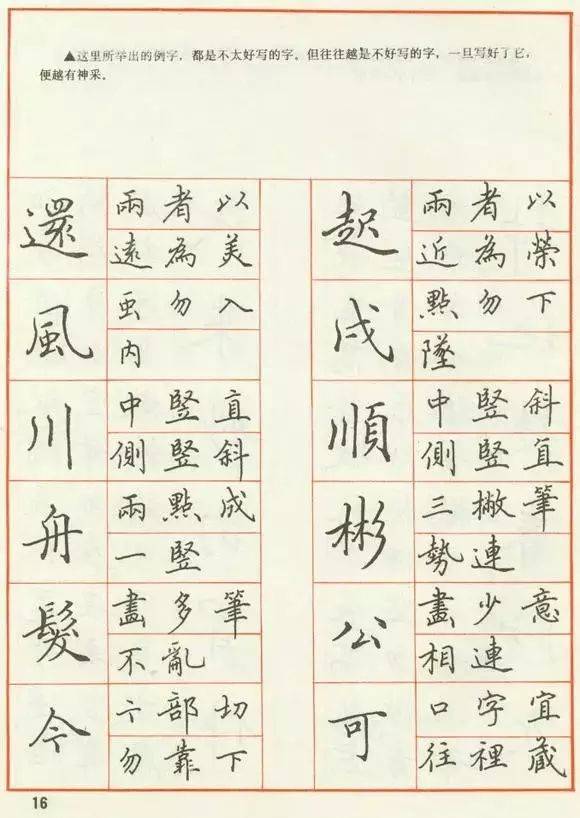 ▲这里所举出的例字，都是不太好写的字。但往往越是不好写的字，一旦写好了它，
便越有神采。
還
兩者以
遠為美
風
虫勿入
内
川
中竪直
側竪斜
舟
兩點成
一竪
髮
畫多筆
不亂
今
部切
勿靠下
起
兩者以
近為榮
戍
點勿下
墜
順
中竪斜
側竪直
彬
三撇筆
勢連
公
畫少意
相連
可
口字宜
往裡藏
16